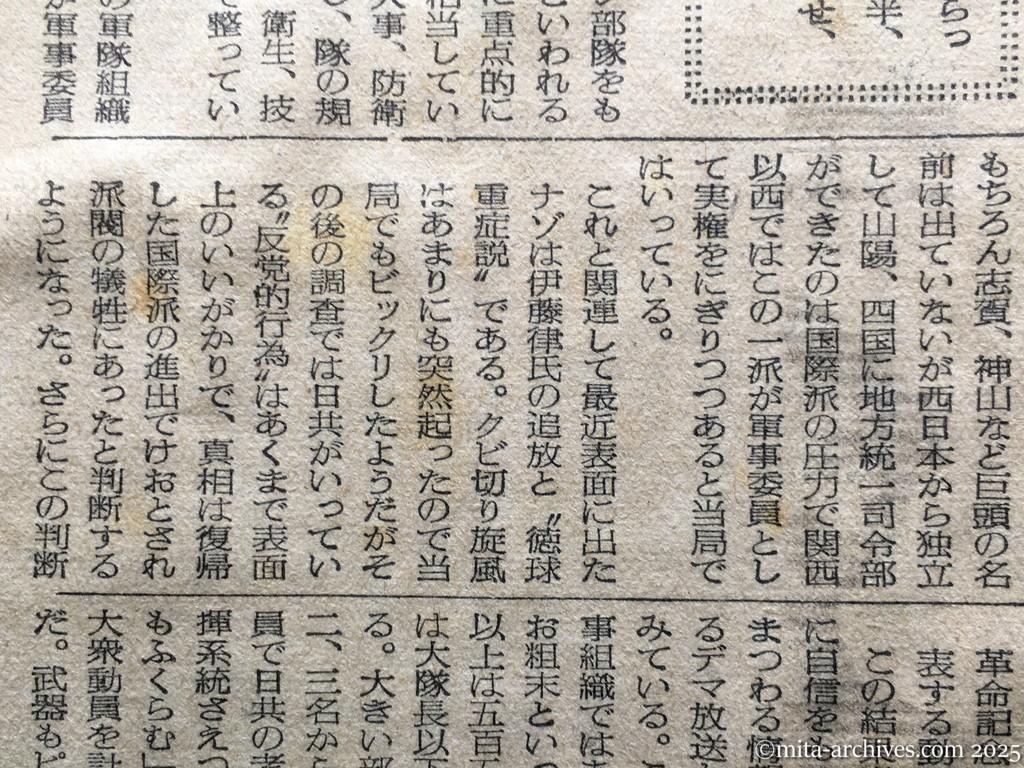 らっ
半、
せ、
部隊をも
といわれる
に重点的に
相当してい
人事、防衛
し、隊の規
衛生、技
て整ってい
の軍隊組織
が軍事委員
もちろん志賀、神山など巨頭の名
前は出ていないが西日本から独立
して山陽、四国に地方統一司令部
ができたのは国際派の圧力で関西
以西ではこの一派が軍事委員とし
て実権をにぎりつつあると当局で
はいっている。
これと関連して最近表面に出た
ナゾは伊藤律氏の追放と〝徳球
重症説〟である。クビ切り旋風
はあまりにも突然起ったので当
局でもビックリしたようだがそ
の後の調査では日共がいってい
る〝反党的行為〟はあくまで表面
上のいいがかりで、真相は復帰
した国際派の進出でけおとされ
派閥の犠牲にあったと判断する
ようになった。さらにこの判断
革命記念
表する動
この結果
に自信をも
まつわる憶
るデマ放送
みている。
事組織では
お粗末とい
以上は五百五
は大隊長以下
る。大きい部
二、三名から
員で日共の考
揮系統さえつ
もふくらむ
大衆動員を計
だ。武器もピ
©mita-archives.com 2025